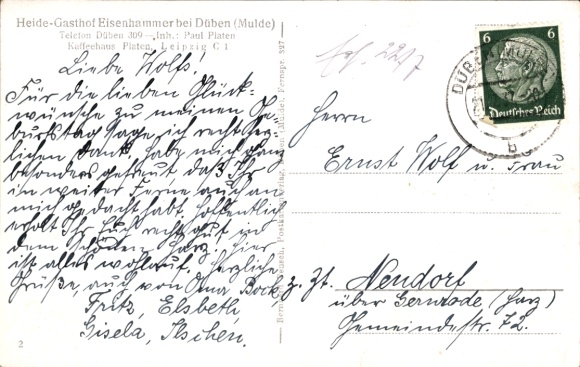 Heide-Gasthof Eisenhammer bei Düben (Mulde)
Telefon Düben 309 — Inh.: Paul Platen
Kaffeehaus Platen, Leipzig C 1
Liebe Wolfs!
Für die lieben Glück-
wünsche zu meinem Ge-
burtstag sage ich recht herz-
lichen Dank. habe mich ganz
besonders gefreut, daß Ihr
in weiter Ferne auch an
mich gedacht habt. Hoffentlich
erholt Ihr Euch recht gut in
dem schönen Harz. Hier
ist alles wohlauf. Herzliche
Grüße, auch von Oma Bock,
Fritz, Elsbeth
Gisela,
2
6 6
Deutsches Reich
DÜBEN (MULDE)
b
Herrn
Ernst Wolf u. Frau
z. Zt. Neudorf
über Gernrode (Harz)
Gemeindestr. 72.